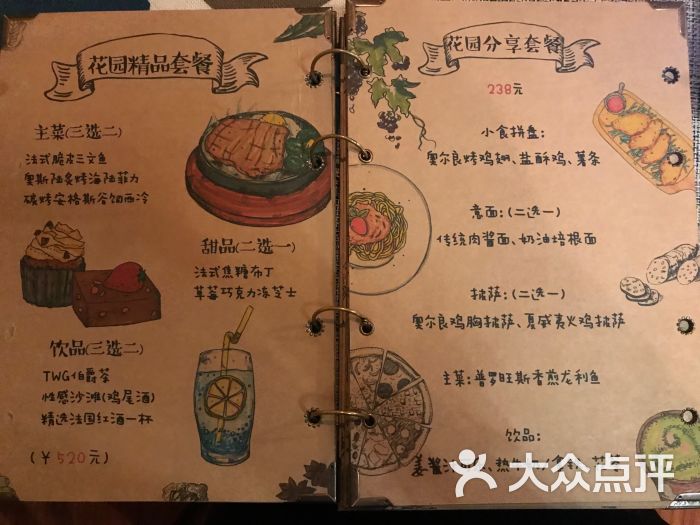 花园精品套餐
主菜(三选二)
法式脆皮三文鱼
奥斯陆炙烤海陆菲力
碳烤安格斯谷饲西冷
甜品(二选一)
法式焦糖布丁
草莓巧克力冻芝士
饮品(三选二)
TWG伯爵茶
性感沙滩(鸡尾酒)
精选法国红酒一杯
(￥520元)
花园分享套餐
238元
小食拼盘:
奥尔良烤鸡翅、盐酥鸡、薯条
意面:(二选一)
传统肉酱面、奶油培根面
披萨:(二选一)
奥尔良鸡胸披萨、夏威夷火鸡披萨
主菜:普罗旺斯香煎龙利鱼
饮品:
大众点评